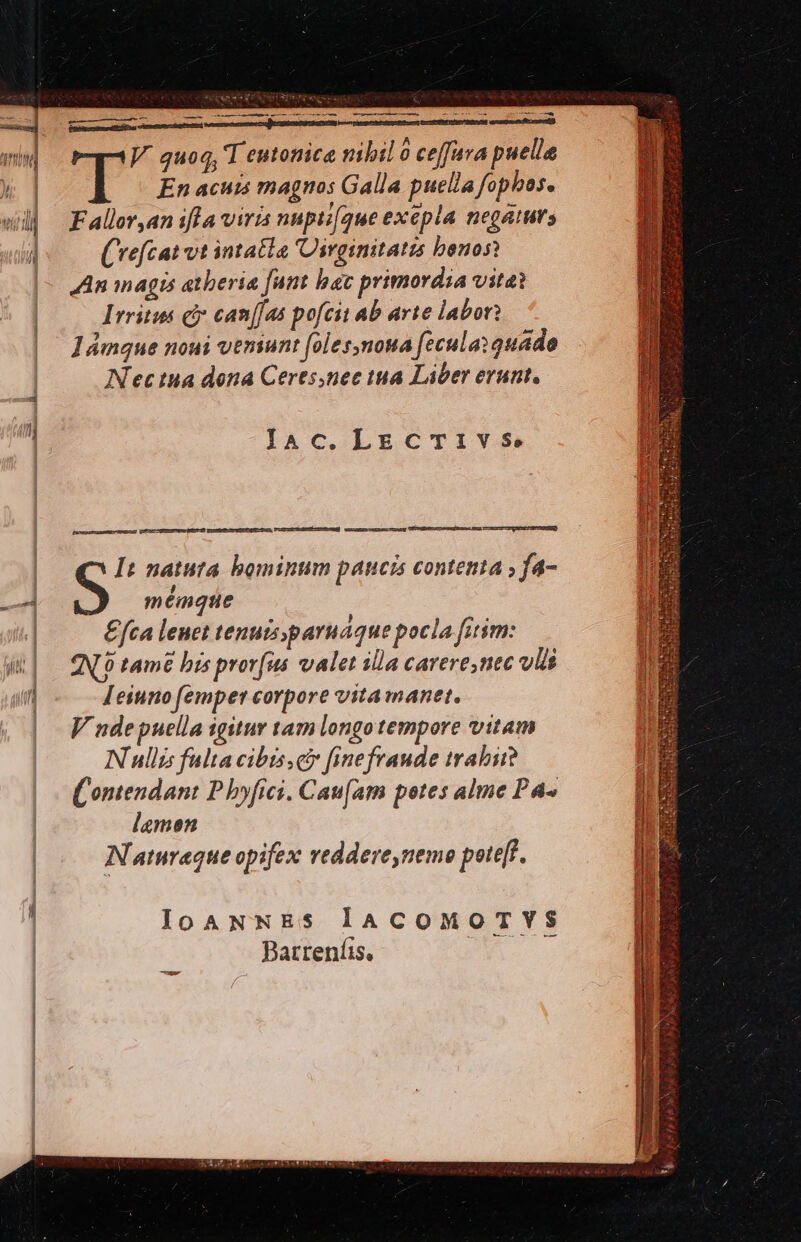 TV quoq, Teutonica nihil ô cessura puellæ
En acuis magnos Galla puella sophos.
Fallor, an ista viris nuptiisque exẽpla negaturs
Crescat vt intacta Virginitatis honos?
An magis ætheriæ sunt hæc primordia vitæ?
Irritus & caussas poscit ab arte labor?
Iámque noui veniunt soles, noua secula: quãdo
Nec tua dona Ceres, nec tua Liber erunt.
IAC. LECTIVS.
SIt natura hominum paucis contenta, fa-
mémque
Esca leuet tenuis, paruáque pocla sitim:
Nõ tamẽ his prorsus valet illa carere, nec vlli
Ieiuno semper corpore vita manet.
Vnde puella igitur tam longo tempore vitam
Nullis fulta cibis, & sine fraude trahit?
Contendant Physici. Causam potes alme Pa-
læmon
Naturæque opifex reddere, nemo potest.
IOANNES IACOMOTVS
Barrensis.